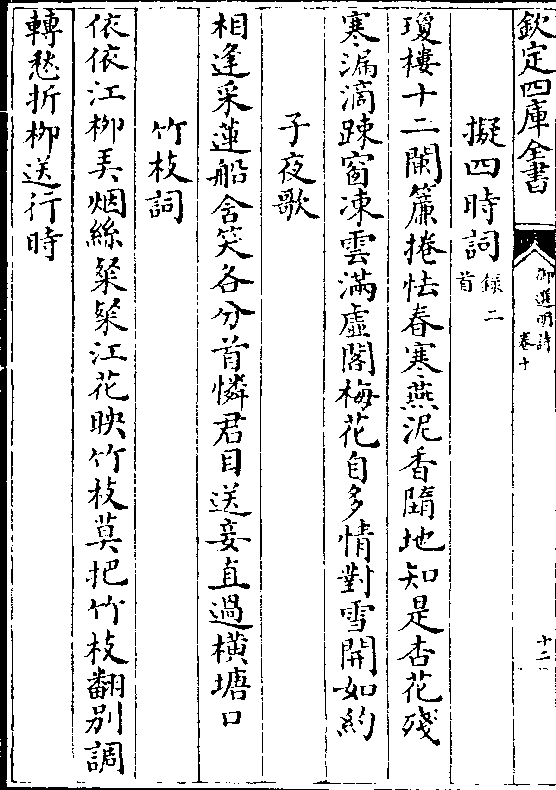 欽定四庫全書
御選明詩
卷十
十二
擬四時詞錄二首
瓊樓十二闌簾捲怯春寒燕泥香隨地知是杏花殘
寒漏滴踈窗凍雲滿虛閣梅花自多情對雪開如約
子夜歌
相逢采蓮船含笑各分首憐君目送妾直過橫塘口
竹枝詞
依依江柳弄烟絲粲粲江花映竹枝莫把竹枝翻別調
轉愁折柳送行時